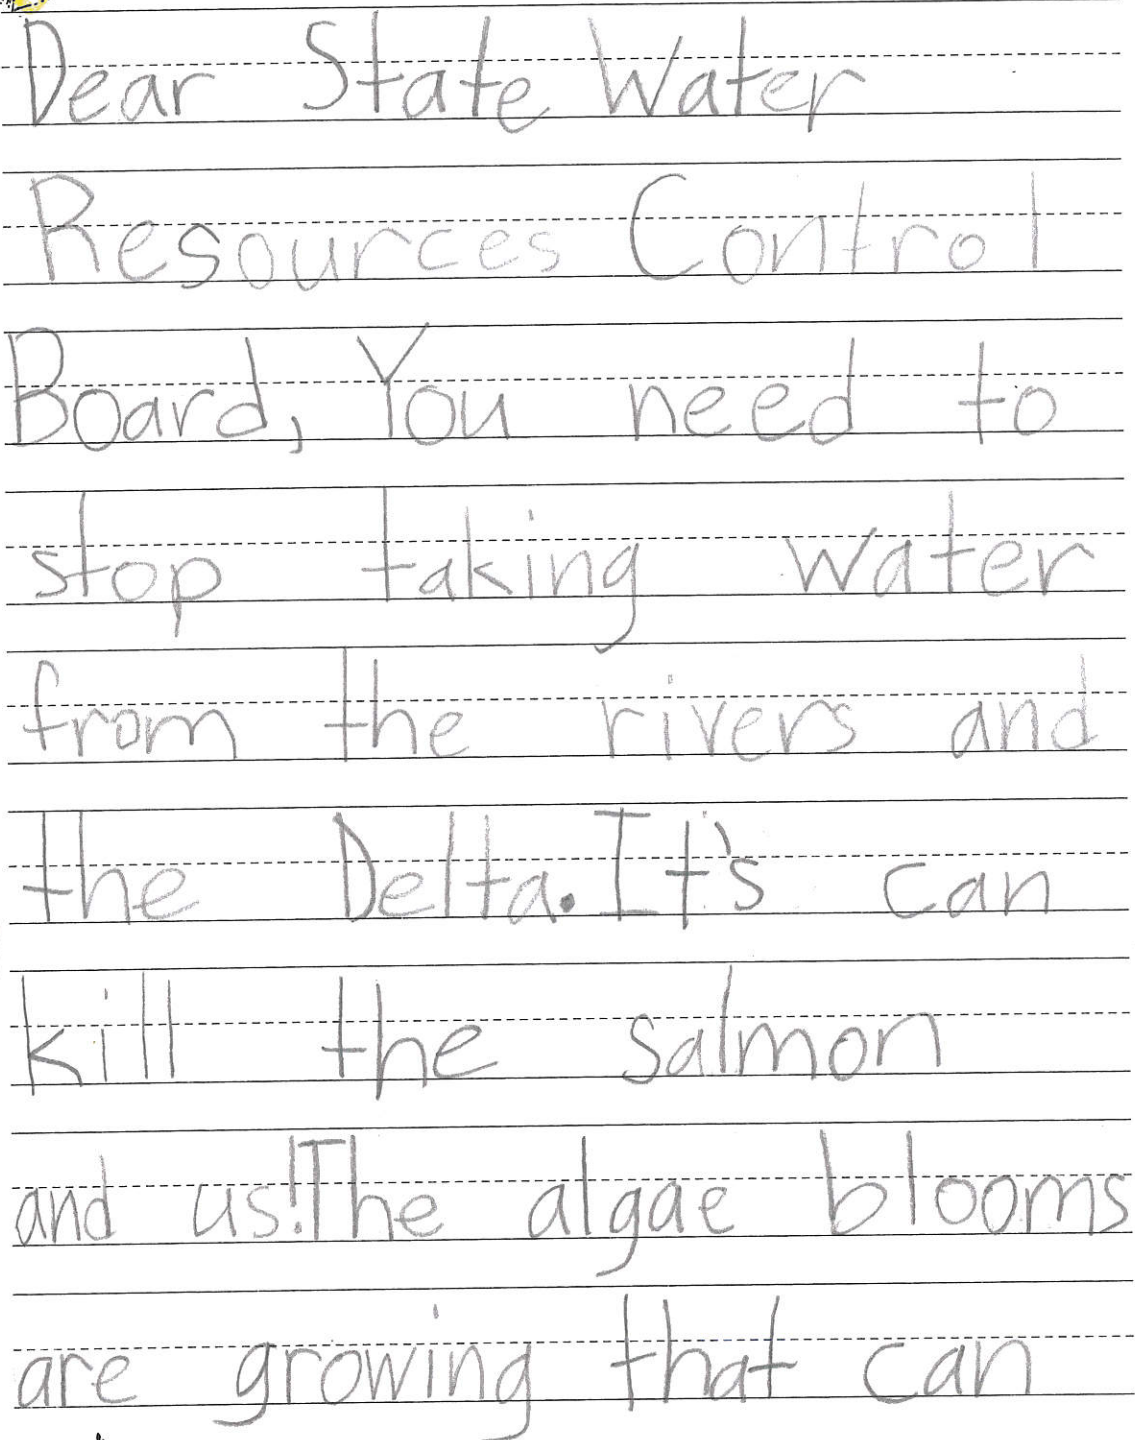 Dear State Water
Resources Control
Board, You need to
stop taking water
from the rivers and
the Delta. It's can
kill the salmon
and us! The algae blooms
are growing that can